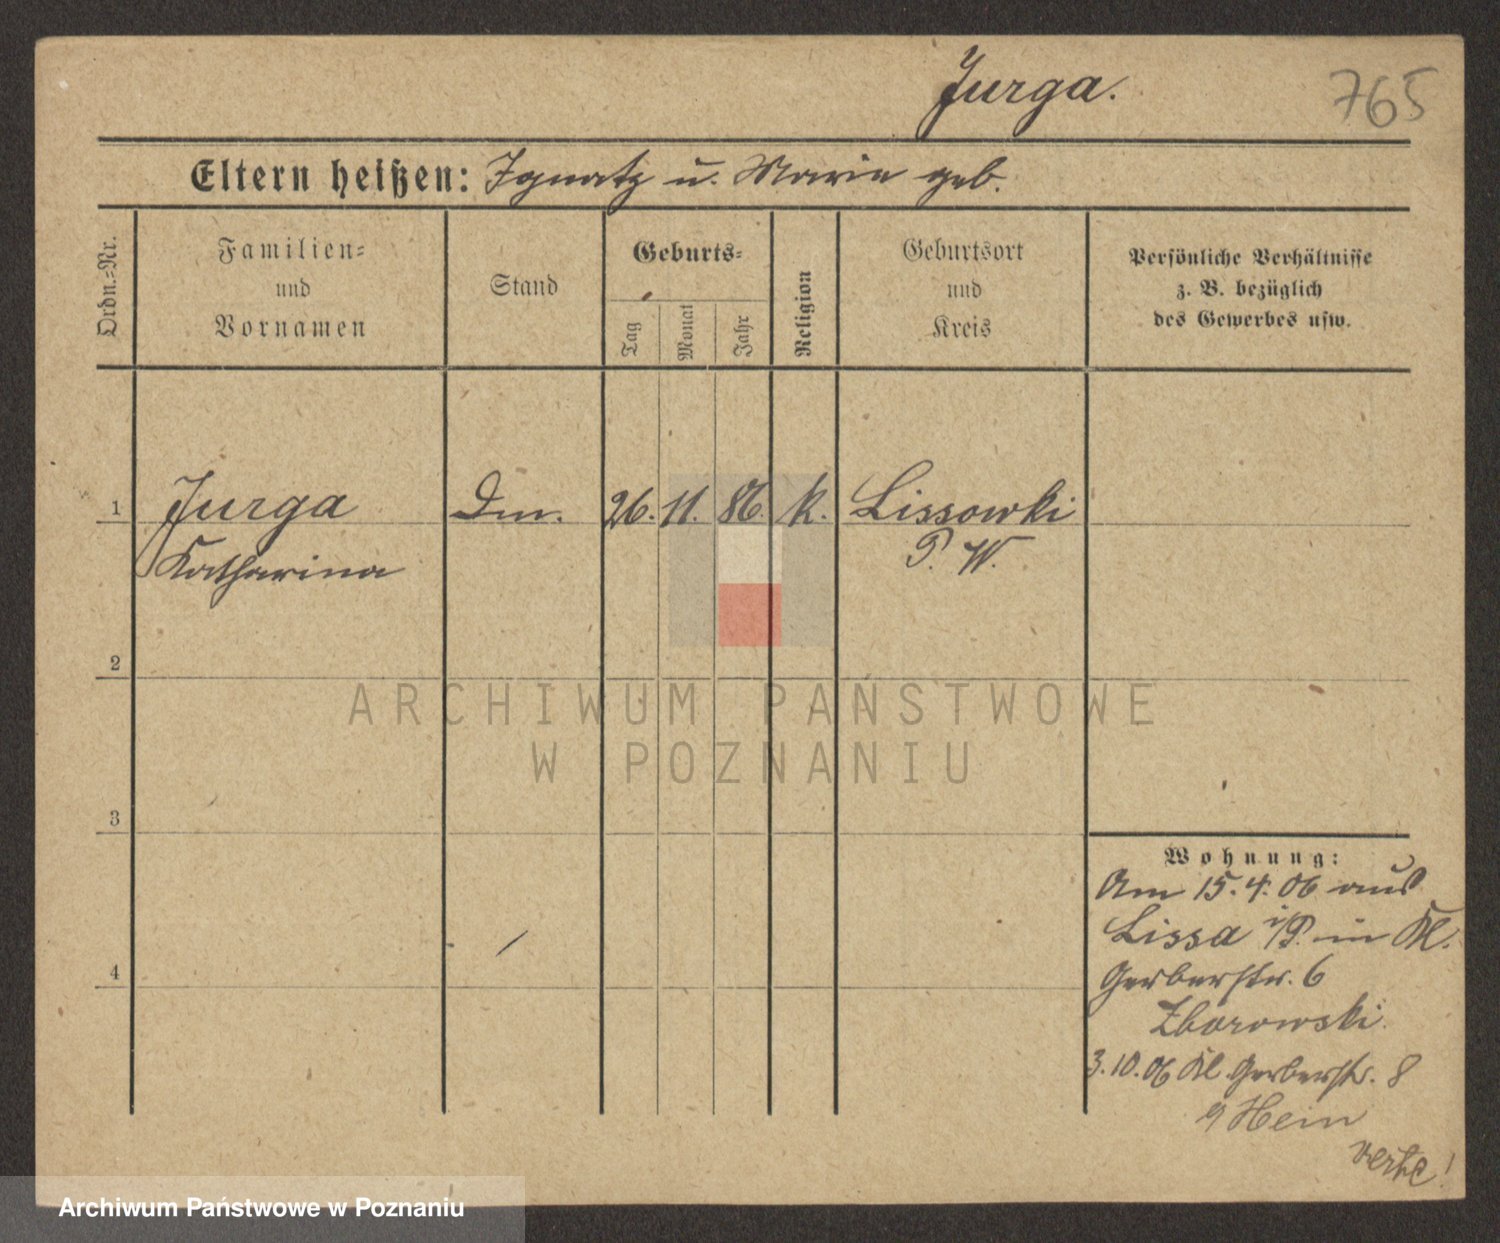 Jurga.
765
Eltern heißen: Ignatz u. Marie geb.
Ordn.=Nr.
Familien=
und
Vornamen
Stand
Geburts=
Tag
Monat
Jahr
Religion
Geburtsort
und
Kreis
Persönliche Verhältnisse
z. B. bezüglich
des Gewerbes usw.
1 Jurga Dm. 26. 11. 86. k. Lissowki
Katharina P. W.
2
3
4
Wohnung:
Am 15.4.06 aus
Lissa i/P. in Kl.
Gerberstr. 6
Zborowski.
3.10.06 Kl. Gerberstr. 8
Hein
ARCHIWUM PAŃSTWOWE
W POZNANIU
Archiwum Państwowe w Poznaniu